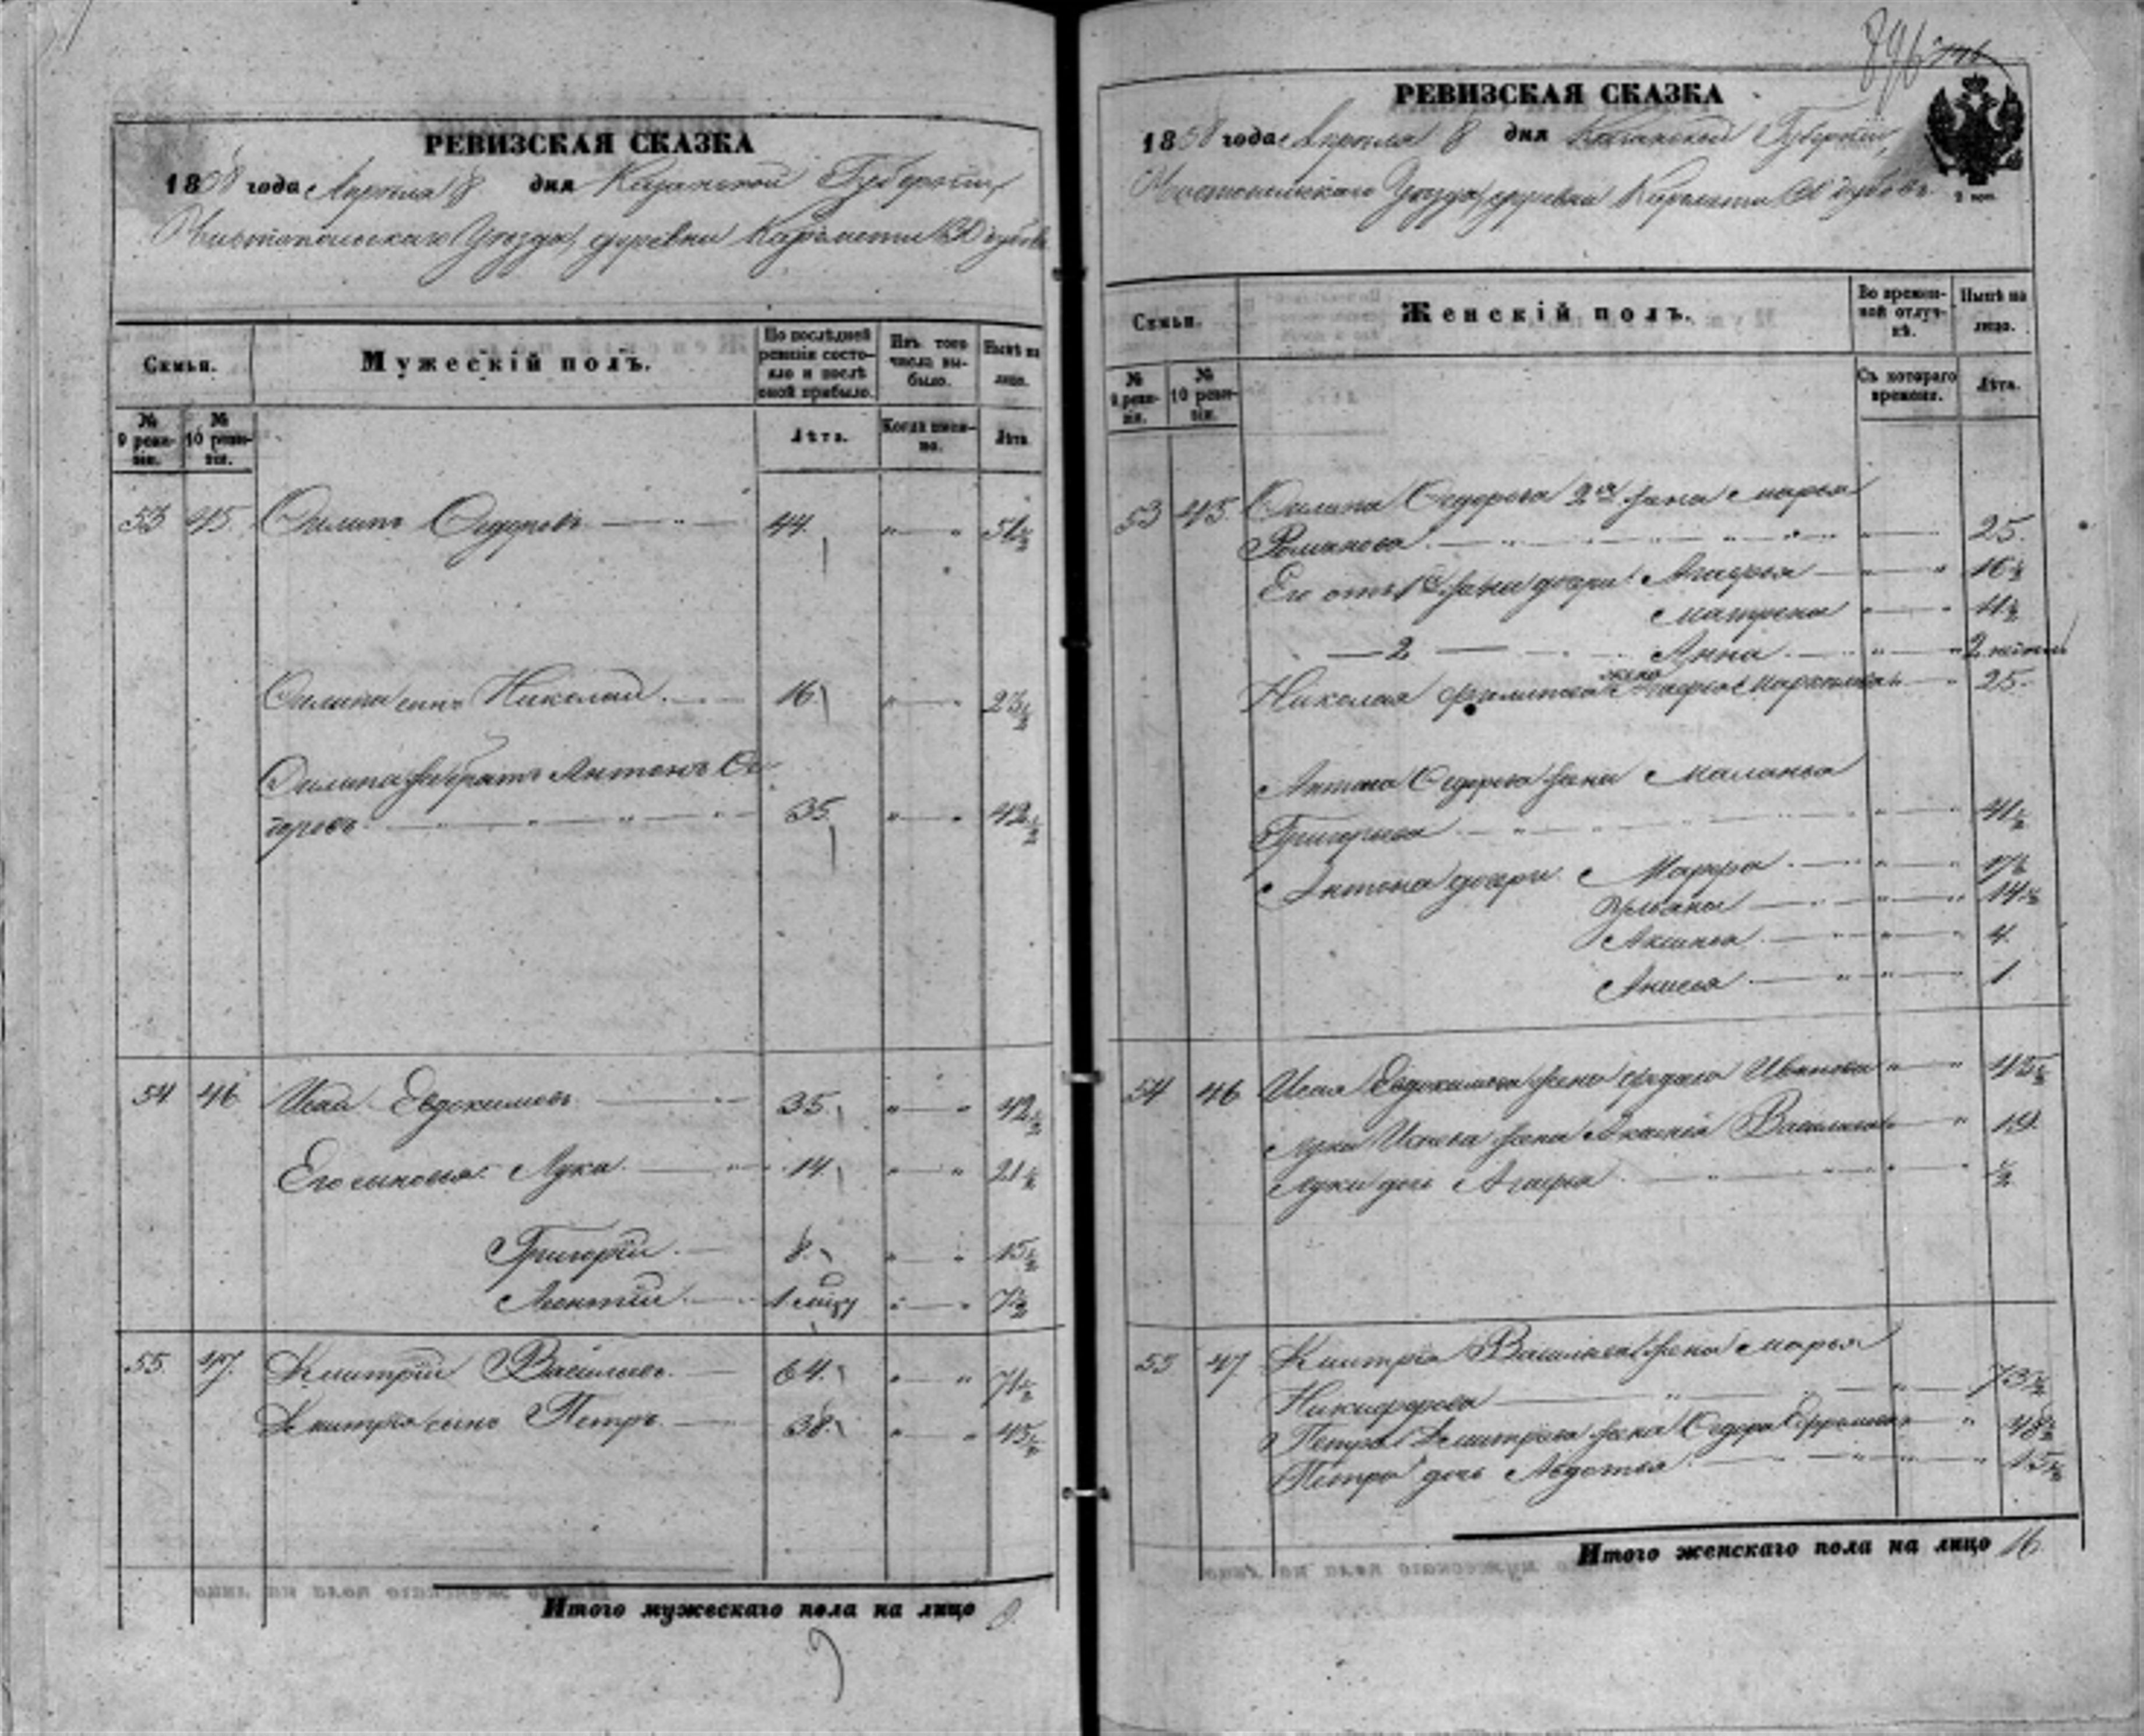 РЕВИЗСКАЯ СКАЗКА
1858 года Апреля 8 дня Казанской Губернии,
Чистопольскаго Уезда, деревни
Семьи.
Мужескій полъ.
По послѣдней ревизіи состояло и послѣ оной прибыло.
Изъ того числа выбыло.
Нынѣ на лицо.
№ 9 ревизіи.
№ 10 ревизіи.
Лѣта.
Когда именно.
Лѣта.
53 45. Филипъ Федоровъ 44. 51½
Филипа сынъ Николай 16. 23½
Филипа братъ Антонъ Фе-
доровъ 35. 42½
54 46 Исай Евдокимовъ 35. 42½
Его сыновья: Лука 14. 21½
Григорій 8. 15½
Леонтій 7½
55. 47. Дмитрій Васильевъ 64. 71½
Дмитрія сынъ Петръ 38. 45½
Итого мужескаго пола на лицо 9.
896 146
РЕВИЗСКАЯ СКАЗКА
1858 года Апреля 8 дня Казанской Губернии,
Чистопольскаго Уезда, деревни
Семьи.
Женскій полъ.
Во временной отлучкѣ.
Нынѣ на лицо.
№ 9 ревизіи.
№ 10 ревизіи.
Съ котораго времени.
Лѣта.
53 45. Филипа Федорова 2я жена Марья
Романова 25.
Его отъ 1й жены дочери: Агафья 16½
Матрена 11½
2 Анна
жена
Николая Филипова 25.
Антона Федорова жена Маланья
Григорьева 41½
Антона дочери Марфа 17½
Ульяна 14½
Аксинья 4.
Анисья 1
54 46 Исая Евдокимова жена Иванова 42½
Луки Исаева жена Васильева 19.
Луки дочь Агафья ½
55 47. Дмитрія Васильева жена Марья
Никифорова 73½
Петра Дмитріева жена 48½
Петра дочь Авдотья 15½
Итого женскаго пола на лицо 16.